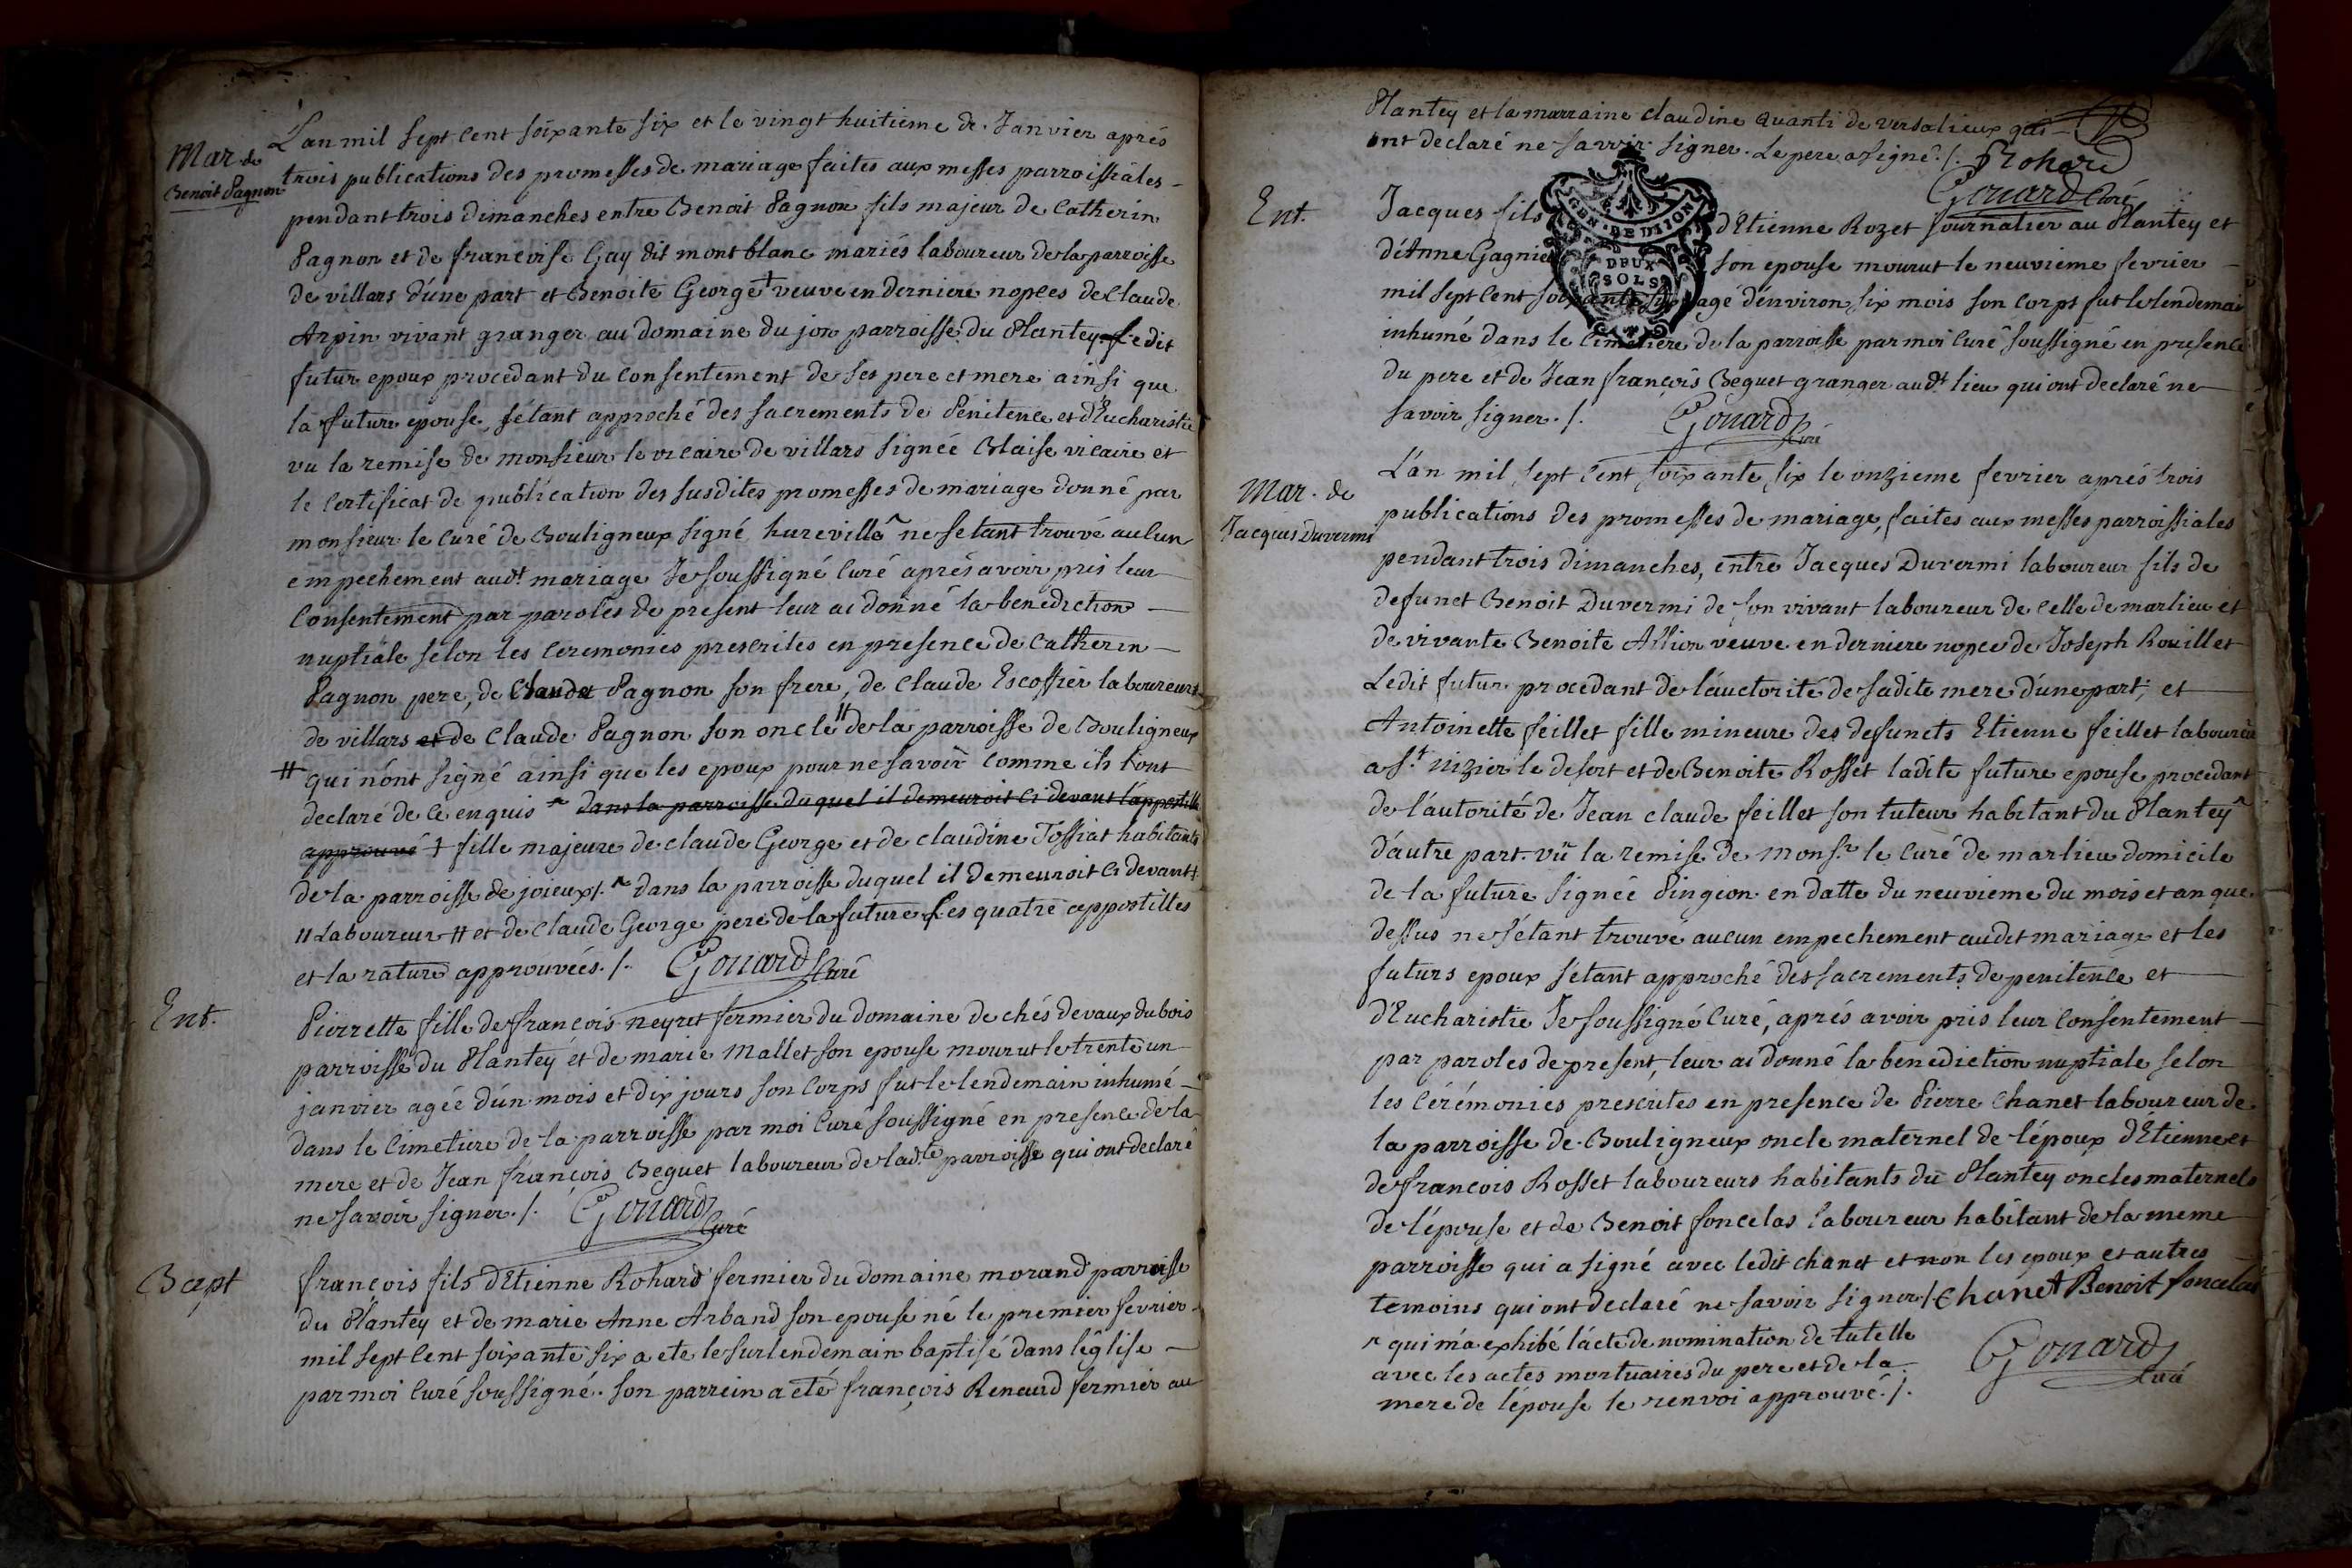 Mar. de
Benoit Pagnon
L'an mil sept cent soixante six et le vingt huitieme de Janvier aprés
trois publications des promesses de mariage faites aux messes parroissiales
pendant trois dimanches entre Benoit Pagnon fils majeur de Catherin
Pagnon et de francoise Gay dit mont blanc mariés laboureur de la parroisse
de villars d'une part et Benoite George † veuve en derniere nopces de Claude
Arpin vivant granger au domaine du jon parroisse du Plantey ledit
futur epoux procedant du consentement de ses pere et mere ainsi que
la future epouse, s'étant approché des sacrements de Pénitence et d'Eucharistie
vu la remise de monsieur le vicaire de villars signée Blaise vicaire et
le certificat de publication des susdites promesses de mariage donné par
monsieur le curé de Bouligneux signé hurevilla ^ ne se tant trouvé aucun
empechement audt mariage Je soussigné curé aprés avoir pris leur
consentement par paroles de present leur ai donné la benediction
nuptiale selon les ceremonies prescrites en presence de Catherin
Pagnon pere, de Claude Pagnon son frere, de Claude Escoffier laboureurs
de villars et de Claude Pagnon son oncle " de la parroisse de Bouligneux
# qui n'ont signé ainsi que les epoux pour ne savoir comme ils l'ont
declaré de ce enquis ^ dans la parroisse duquel il demeuroit ci devant l'appostille
approuvé † fille majeure de claude George et de claudine Tossiat habitants
de la parroisse de joieux /. ^ dans la parroisse duquel il demeuroit ci devant
" Laboureur # et de Claude George pere de la future Les quatre appostilles
et la rature approuvées. /. Gonard Curé
Ent.
Pierrette fille de françois neyret fermier du domaine de chés devaux du bois
parroisse du Plantey et de marie Mallet son epouse mourut le trente un
janvier agée d'un mois et dix jours son corps fut le lendemain inhumé
dans le cimetiere de la parroisse par moi curé soussigné en presence de la
mere et de Jean françois Beguet laboureur de lad.te parroisse qui ont declaré
ne savoir signer. /. Gonard Curé
Bapt
françois fils d'Etienne Rohard fermier du domaine morand parroisse
du Plantey et de marie Anne Arband son epouse né le premier fevrier
mil sept cent soixante six a ete le surlendemain baptisé dans l'église
par moi curé soussigné. son parrein a eté françois Renaud fermier au
Plantey et la marraine claudine Quanti de versalieux qui
ont declaré ne savoir signer. Le pere a signé. /. Rohard
Gonard Curé
GEN. DE DIJON
DEUX
SOLS
Ent.
Jacques fils d'Etienne Rozet Journalier au Plantey et
d'Anne Gagnie son epouse mourut le neuvieme fevrier
mil sept cent soixante six agé d'environ six mois son corps fut le lendemain
inhumé dans le cimetiere de la parroisse par moi curé soussigné en presence
du pere et de Jean françois Beguet granger audt lieu qui ont declaré ne
savoir signer. /. Gonard Curé
Mar. de
Jacques Duvermi
L'an mil sept cent soixante six le onzieme fevrier aprés trois
publications des promesses de mariage, faites aux messes parroissiales
pendant trois dimanches, entre Jacques Duvermi laboureur fils de
defunct Benoit Duvermi de son vivant laboureur de celle de marlieu et
de vivante Benoite Allion veuve en derniere nopce de Joseph Rouillet
Ledit futur procedant de l'auctorité de sadite mere d'une part, et
Antoinette feillet fille mineure des defuncts Etienne feillet laboureur
a St. nizier le desert et de Benoite Rosset ladite future epouse procedant
de l'autorité de Jean claude feillet son tuteur habitant du Plantey ^
d'autre part. vü la remise de Mons.r le curé de marlieu domicile
de la future signée Pingion en datte du neuvieme du mois et an que
dessus ne s'étant trouvé aucun empechement audit mariage et les
futurs epoux s'étant approché des sacrements de penitence et
d'Eucharistie Je soussigné curé, aprés avoir pris leur consentement
par paroles de present, leur ai donné la benediction nuptiale selon
les cérémonies prescrites en presence de Pierre Chanet laboureur de
la parroisse de Bouligneux oncle maternel de l'époux d'Etienne et
de françois Rosset laboureurs habitants du Plantey oncles maternels
de l'épouse et de Benoit foncelas laboureur habitant de la meme
parroisse qui a signé avec ledit chanet et non les epoux et autres
temoins qui ont declaré ne savoir signer /. Chanet Benoit foncelas
^ qui m'a exhibé l'acte de nomination de tutelle
avec les actes mortuaires du pere et de la
mere de l'épouse le renvoi approuvé. /.
Gonard
Curé